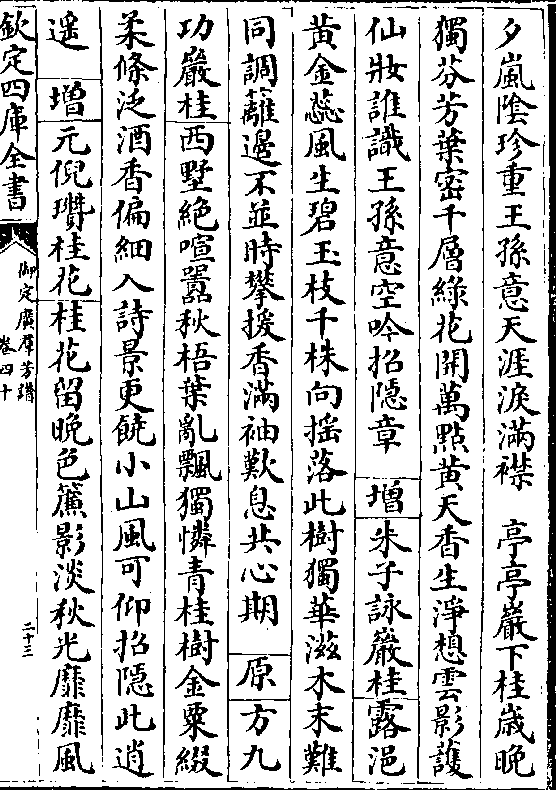 夕嵐陰珍重王孫意天涯淚滿襟　亭亭巖下桂歲晚
獨芬芳葉密千層綠花開萬點黃天香生淨想雲影護
仙妝誰識王孫意空吟招隱章　增朱子詠巖桂露浥
黃金蕊風生碧玉枝千株向揺落此樹獨華滋木末難
同調籬邊不並時攀援香滿袖歎息共心期　原方九
功巖桂西墅絶喧囂秋梧葉亂飄獨憐青桂樹金粟綴
柔條泛酒香偏細入詩景更饒小山風可仰招隱此逍
遙　增元倪瓚桂花桂花留晚色簾影淡秋光靡靡風
欽定四庫全書
御定廣羣芳譜
卷四十
二十三